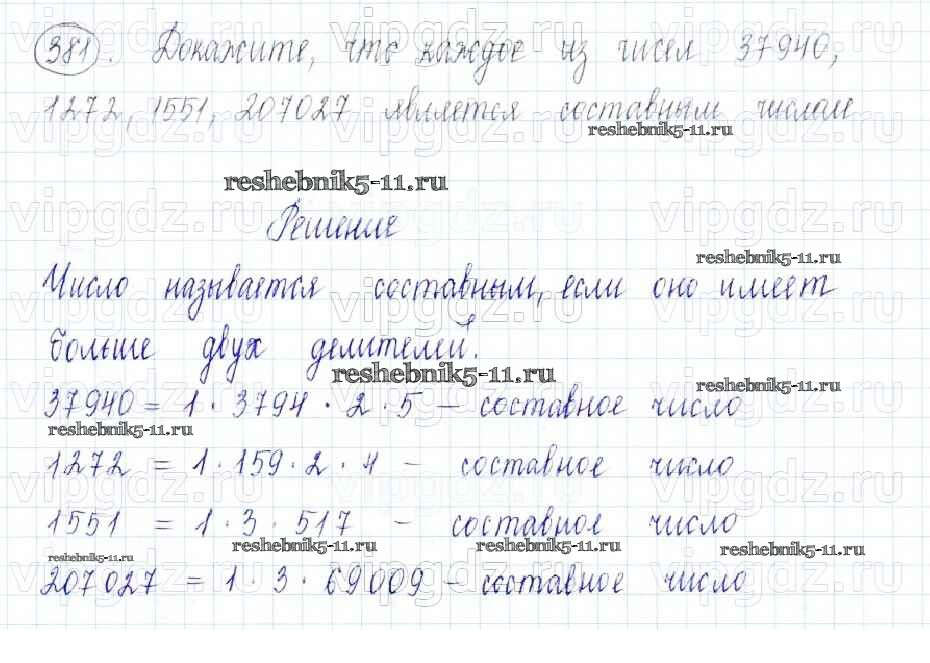 381. Докажите, что каждое из чисел 37940,
1272, 1551, 207027 является составным числом
reshebnik5-11.ru
reshebnik5-11.ru
Решение
reshebnik5-11.ru
Число называется составным, если оно имеет
больше двух делителей.
reshebnik5-11.ru
reshebnik5-11.ru
37940 = 1 · 3794 · 2 · 5 – составное число
reshebnik5-11.ru
1272 = 1 · 159 · 2 · 4 – составное число
1551 = 1 · 3 · 517 – составное число
reshebnik5-11.ru reshebnik5-11.ru reshebnik5-11.ru
reshebnik5-11.ru
207027 = 1 · 3 · 69009 – составное число
vipgdz.ru